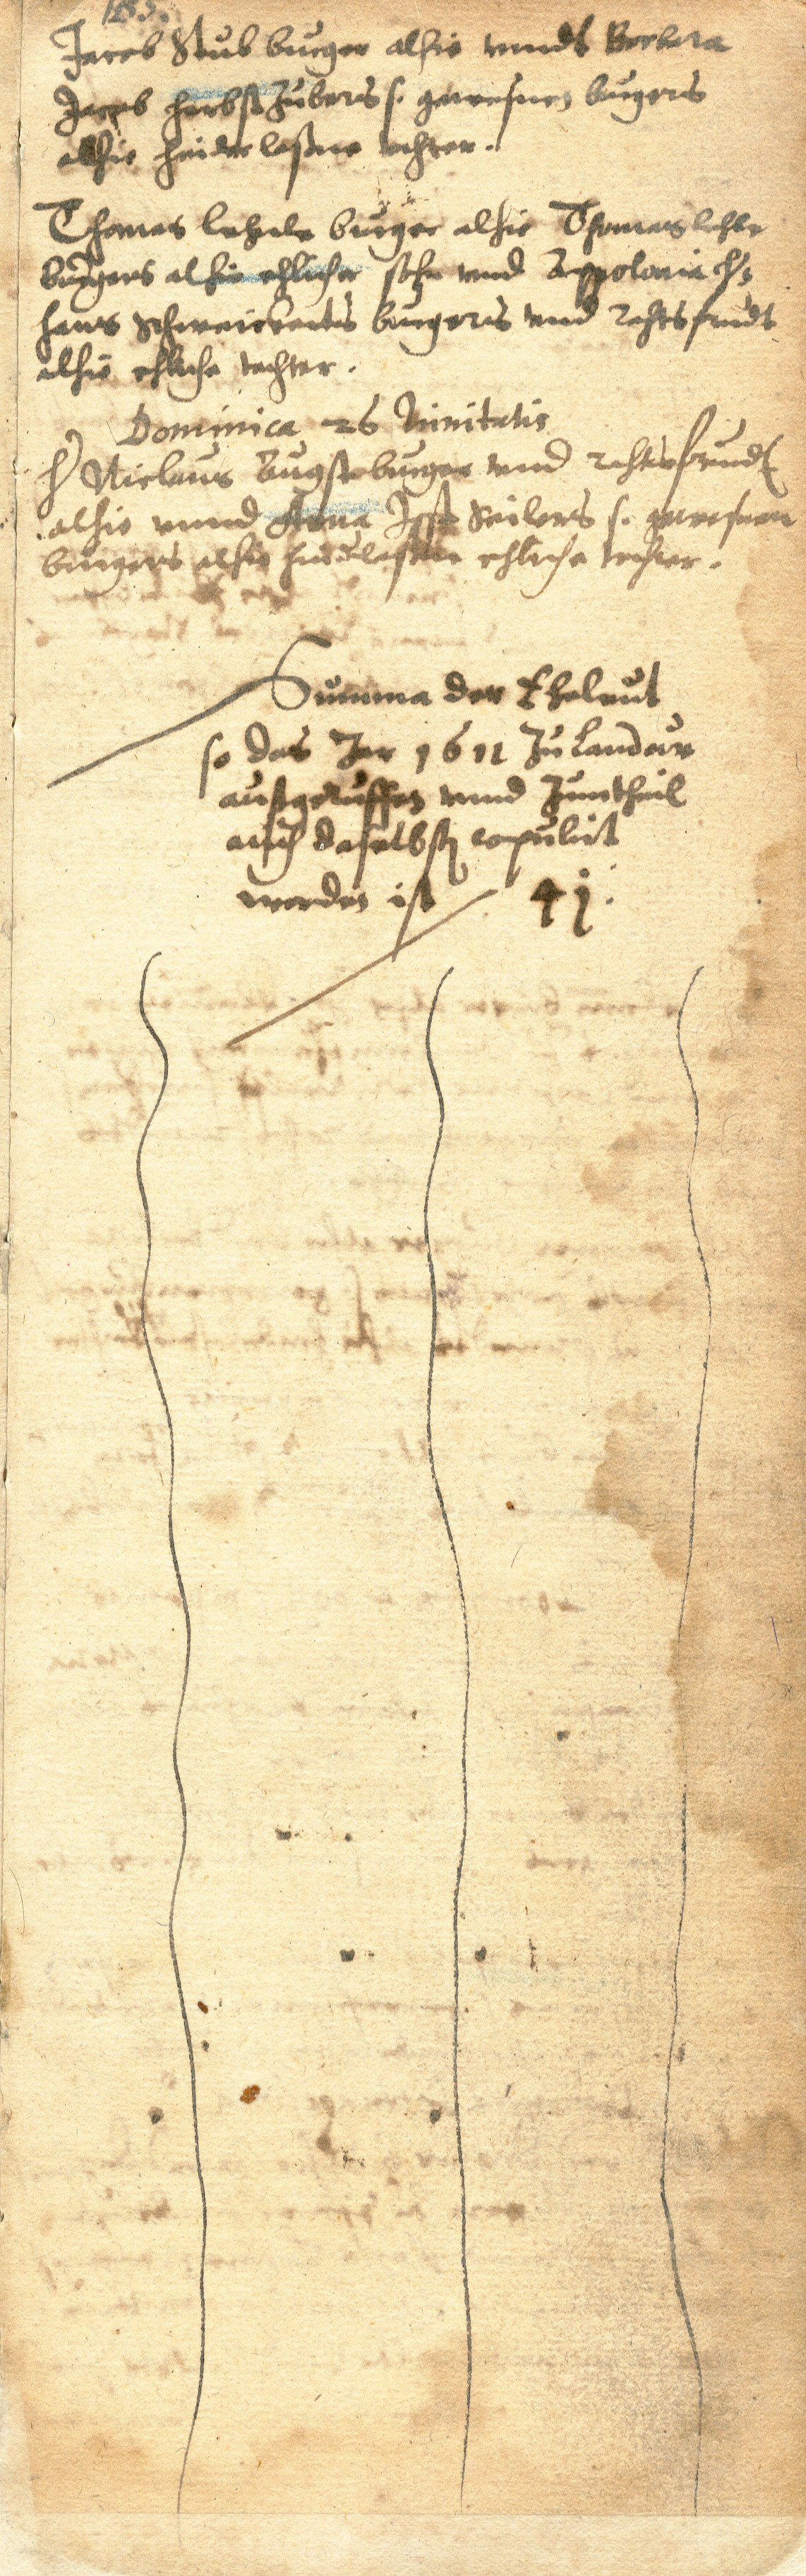 185.
Jacob Stub burger alhie unndt Barbara
Jacob herbst Zubers s. gewesnen burgers
alhie hinderlaßne tochter.
Thomas Lehnle burger alhie Thomas lehle
burgers alhie ehlicher sohn unnd Appolonia H:
Hans Schweickarts burgers und Rahtsfrundt
alhie ehliche tochter.
Dominica 26 Trinitatis
H Niclaus burger unnd Rahtsfrundt
alhie unnd Anna Seilers s. gewesnen
burgers alhie hinderlaßne ehliche tochter.
Summa der Eheleut
so das Jar 1611 Zu Landauw
außgeruffen unnd Zumtheil
auch daselbst copuliert
worden ist 4j.